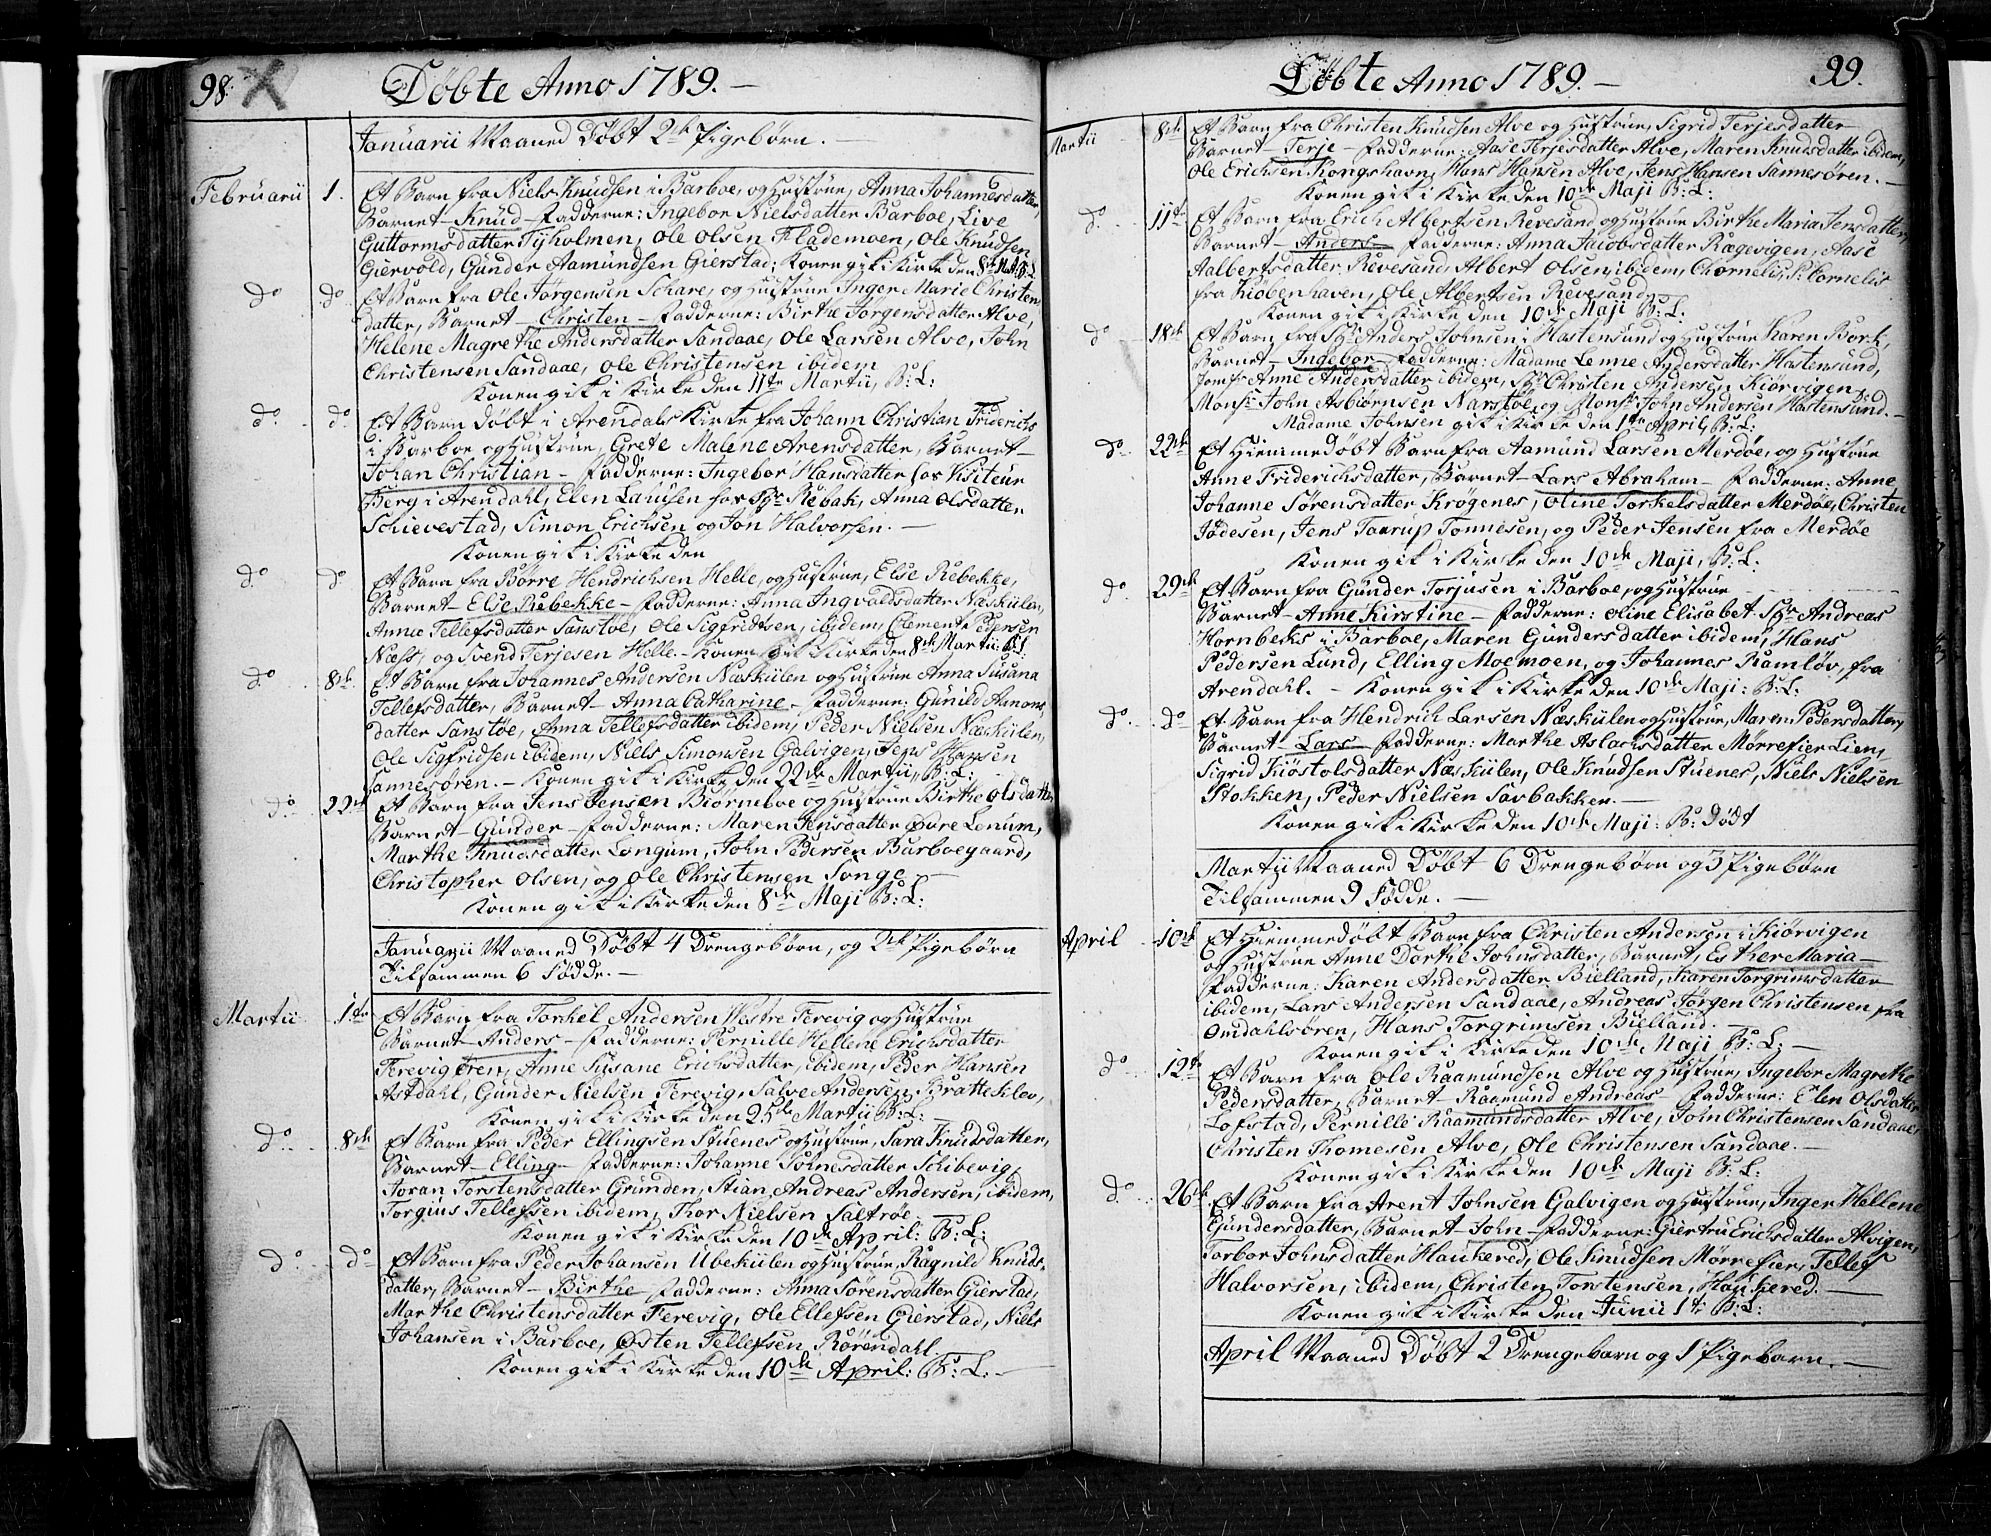 98.
Döbte Anno 1789. —
Januarii Maaned Döbt 2de Pigebörn. —
Februarii 1. Et Barn fra Niels Knudsen i Barboe, og Hustrue, Anna Johannesdatter,
Barnet — Knud — Fadderne: Ingebor Nielsdatter Barboe, Live
Guttormsdatter Tÿholmen, Ole Olsen Flademoen, Ole Knudsen
Giervold, Gunder Aamundsen Gierstad; Konen gik i Kirke den 8de M. B: L.
do do Et Barn fra Ole Jörgensen Schare, og Hustrue Inger Marie Christens
datter, Barnet — Christen — Fadderne: Birthe Jörgensdatter Alve,
Helene Magrethe Andersdatter Sandaae, Ole Larsen Alve, John
Christensen Sandaae, Ole Christensen ibidem
Konen gik i Kirke den 11te Martii, B: L:
do do Et Barn Döbt i Arendals Kirke fra Johann Christian Friderichs
i Barboe og Hustrue, Grete Malene Arensdatter, Barnet —
Johan Christian — Fadderne: Ingebor Hansdatter hos Visiteur
Berg i Arendahl, Elen Larsen hos Sr Rebak, Anna Olsdatter
Schievestad, Simon Erichsen og Jon Halvorsen. —
Konen gik i Kirke den
do do Et Barn fra Börre Hendrichsen Helle, og Hustrue, Else Rebekke,
Barnet — Else Rebekke — Fadderne: Anna Ingvaldsdatter Næskilen,
Anne Tellefsdatter Sanstöe, Ole Sigfredsen, ibidem, Clement Pedersen
Næss, og Svend Terjesen Helle. — Konen gik i Kirke den 8de Martii: B: L.
do 8de Et Barn fra Johannes Andersen Næskilen og Hustrue Anna Susana
Tellefsdatter, Barnet — Anna Catharine — Fadderne: Gunild Aanons
datter Sanstöe, Anna Tellefsdatter ibidem, Peder Nielsen Næskilen,
Ole Sigfridsen ibidem, Niels Simonsen Galvigen, Jens Hansen
Sannesören. — Konen gik i Kirke den 22de Martii, B: L:
do 22de Et Barn fra Jens Jensen Biorneboe og Hustrue Birthe Olsdatter
Barnet — Gunder — Fadderne: Maren Jensdatter Övre Lenum,
Marthe Knudsdatter Longum, John Pedersen Barboegaard,
Christopher Olsen, og Ole Christensen Songe. —
Konen gik i Kirke den 8de Maji B: L:
Januarii Maaned Döbt 4 Drengebörn, og 2de Pigebörn
Tilsammen 6 Födde. —
Martii 1te Et Barn fra Torkel Andersen Westre Ferevig og Hustrue
Barnet — Anders — Fadderne: Pernille Hellene Erichsdatter
Ferevig Ören, Anne Susane Erichsdatter, ibidem, Peder Hansen
Astdahl, Gunder Nielsen Ferevig, Salve Andersen Bratteklev,
Konen gik i Kirke den 25de Martii B: L:
do 8de Et Barn fra Peder Ellingsen Stuenes og Hustrue, Sara Knudsdatter,
Barnet — Elling — Fadderne: Johanne Tolnesdatter Schibevig,
Joran Torstensdatter Grunden, Stian Andreas Andersen, ibidem,
Torgius Tellefsen ibidem, Thor Nielsen Saltröe.
Konen gik i Kirke den 10de April: B: L:
do do Et Barn fra Peder Johansen Ubekilen og Hustrue, Ragnild Knuds-
datter, Barnet — Birthe — Fadderne: Anna Sörensdatter Gierstad,
Marthe Christensdatter Ferevig, Ole Ellefsen Gierstad, Niels
Johansen i Barboe, Östen Tellefsen, Rörendahl.
Konen gik i Kirke den 10de April: B: L: —
Döbte Anno 1789. —
99.
Martii 8de Et Barn fra Christen Knudsen Alve og Hustrue, Sigrid Terjesdatter
Barnet — Terje — Fadderne: Aase Terjesdatter Alve, Maren Knudsdatter ibidem,
Ole Erichsen Kongshavn, Hans Hansen Alve, Jens Hansen Sannesören. —
Konen gik i Kirke den 10de Maji B: L:
do 11te Et Barn fra Erich Albertsen Revesand og Hustrue Birthe Maria Jensdatter,
Barnet — Anders — Fadderne: Anna Jacobsdatter Rægevigen, Aase
Aalbertsdatter Revesand, Albert Olsen ibidem, Chornelis P: Cornelis
fra Kiöbenhaven, Ole Albertsen Revesand,
Konen gik i Kirke den 10de Maji B: L.
do 18de Et Barn fra Sr Anders Johnsen i Hastensund og Hustrue Karen Bork,
Barnet — Ingebor — Fadderne: Madame Lenne Andersdatter Hastensund,
Jomfr Anne Andersdatter ibidem, Sr Christen Andersen Kiörvigen,
Monsr John Asbiörnsen Narstöe, og Monsr John Andersen Hastensund. —
Madame Johnsen gik i Kirke den 1te April, B: L:
do 22de Et Hiemmedöbt Barn fra Aamund Larsen Merdöe, og Hustrue
Anne Friderichsdatter, Barnet — Lars Abraham — Fadderne: Anne
Johanne Sörensdatter Krögenes, Oline Torkelsdatter Merdöe, Christen
Jödesen, Jens Taarup Tonnesen, og Peder Jensen fra Merdöe
Konen gik i Kirke den 10de Maji, B: L:
do 29de Et Barn fra Gunder Torjusen i Barboe, og Hustrue
Barnet — Anne Kirstine — Fadderne: Oline Elisabet Sr Andreas
Hornbeks i Barboe, Maren Gundersdatter ibidem, Hans
Pedersen Lund, Elling Moemoen, og Johannes Ramlöv, fra
Arendahl. — Konen gik i Kirke den 10de Maji: B: L:
do do Et Barn fra Hendrich Larsen Næskilen og Hustrue, Maren Pedersdatter,
Barnet — Lars — Fadderne: Marthe Aslachsdatter Mörrefier Lien,
Sigrid Kiöstolsdatter Næskilen, Ole Knudsen Stuenes, Niels Nielsen
Stokken, Peder Nielsen Sarbakken. —
Konen gik i Kirke den 10de Maji: B: Dödt
Martii Maaned Döbt 6 Drengebörn og 3 Pigebörn
Tilsammen 9 Födde. —
April 10de Et Hiemmedöbt Barn fra Christen Andersen i Kiörvigen
og Hustrue Anne Dorthe Johnsdatter, Barnet, Esther Maria —
Fadderne: Karen Andersdatter Bielland, Karen Torgrimsdatter
ibidem, Lars Andersen Sandaae, Andreas Jörgen Christensen fra
Omdahlsören, Hans Torgrimsen Bielland. —
Konen gik i Kirke den 10de Maji B: L: —
do 12te Et Barn fra Ole Raamundsen Alve og Hustrue, Ingebor Magrethe
Pedersdatter, Barnet — Raamund Andreas — Fadderne: Elen Olsdatter
Lofstad, Pernille Raamundsdatter Alve, John Christensen Sandaae,
Christen Thomesen Alve, Ole Christensen Sandaae. —
Konen gik i Kirke den 10de Maji B: L:
do 26de Et Barn fra Arent Johnsen Galvigen og Hustrue, Inger Hellene
Gundersdatter, Barnet — John — Fadderne: Giertru Erichsdatter Alvigen,
Tarbor Johnsdatter Haukered, Ole Knudsen Mörrefier, Tellef
Halvorsen, ibidem, Christen Torstensen, Haukered. —
Konen gik i Kirke den Junii 1te B: L:
April Maaned Döbt 2 Drengebarn og 1 Pigebarn. —